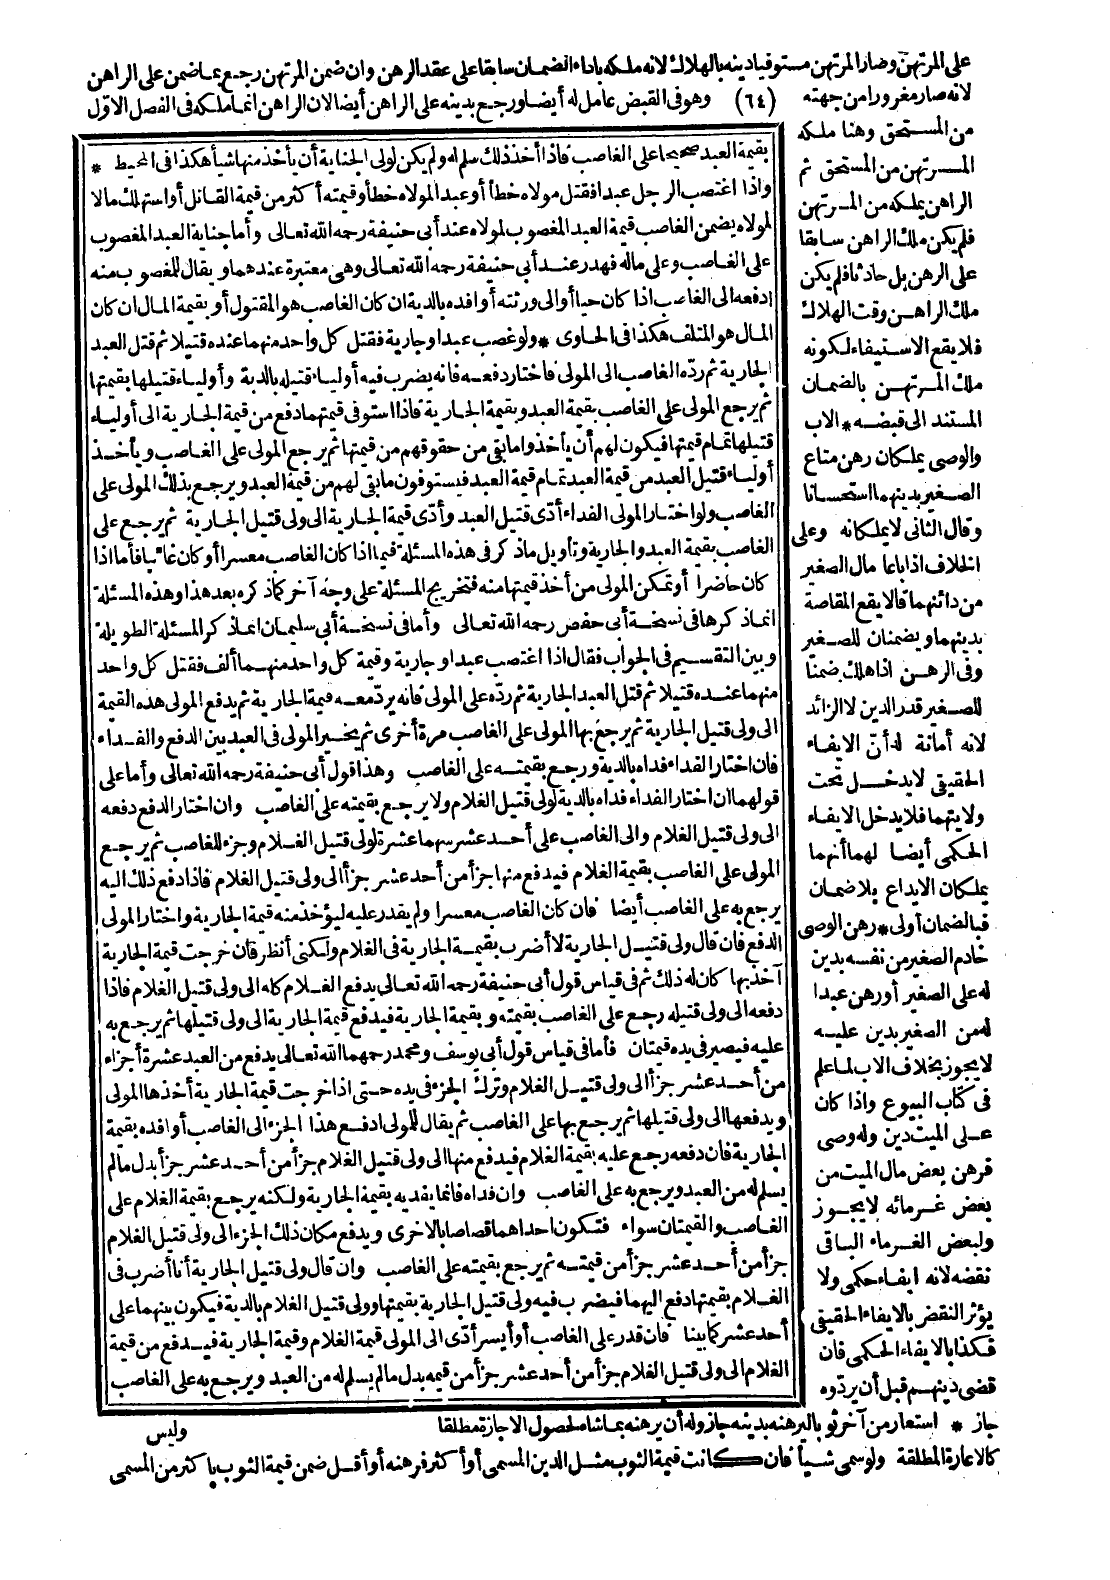 على المرتهن وصار المرتهن مستوفيا دينه بالهلاك لانه ملكه باداء الضمان سابقا على عقد الرهن وان ضمن المرتهن رجع بما ضمن على الراهن
لانه صار مغرورا من جهته (٦٤) وهو فى القبض عامل له أيضا ورجع بدينه على الراهن أيضا لان الراهن انما ملكه فى الفصل الاوّل
من المستحق وهنا ملكه
المرتهن من المستحق ثم
الراهن يملكه من المرتهن
فلم يكن ملك الراهن سابقا
على الرهن بل حادثا فلم يكن
ملك الراهن وقت الهلاك
فلا يقع الاستيفاء لكونه
ملك المرتهن بالضمان
المستند الى قبضه * الاب
والوصى يملكان رهن متاع
الصغير بدينهما استحسانا
وقال الثانى لا يملكانه وعلى
الخلاف اذا باعا مال الصغير
من دائنهما قالا يقع المقاصة
بدينهما ويضمنان للصغير
وفى الرهن اذا هلك ضمنا
للصغير قدر الدين لا الزائد
لانه أمانة له أنّ الايفاء
الحقيقى لا يدخل تحت
ولايتهما فلا يدخل الايفاء
الحكمى أيضا لهما أنهما
يملكان الايداع بلا ضمان
فبالضمان أولى * رهن الوصى
خادم الصغير من نفسه بدين
له على الصغير أو رهن عبدا
له من الصغير بدين عليه
لا يجوز بخلاف الاب لما علم
فى كتاب البيوع واذا كان
على الميت دين وله وصى
فرهن بعض مال الميت من
بعض غرمائه لا يجوز
ولبعض الغرماء الباقى
نقضه لانه ايفاء حكمى ولا
يؤثر النقض بالايفاء الحقيقى
فكذا بالايفاء الحكمى فان
قضى دينهم قبل أن يردّوه
جاز * استعار من آخر ثوبا ليرهنه بدينه جاز وله أن يرهنه بما شاء لحصول الاجازة مطلقا
كالاعارة المطلقة ولو سمى شيأ فان كانت قيمة الثوب مثل الدين المسمى أو أكثر فرهنه أو أقل ضمن قيمة الثوب باكثر من المسمى
بقيمة العبد صحيحا على الغاصب فاذا أخذ ذلك سلم له ولم يكن لولى الجناية أن يأخذ منها شيأ هكذا فى المحيط *
واذا اغتصب الرجل عبدا فقتل مولاه خطأ أو عبد المولاه خطأ وقيمته أكثر من قيمة القاتل أو استهلك مالا
لمولاه يضمن الغاصب قيمة العبد المغصوب لمولاه عند أبى حنيفة رحمه الله تعالى وأما جناية العبد المغصوب
على الغاصب وعلى ماله فهدر عند أبى حنيفة رحمه الله تعالى وهى معتبرة عندهما ويقال للمغصوب منه
ادفعه الى الغاصب اذا كان حيا أو الى ورثته أو افده بالدية ان كان الغاصب هو المقتول أو بقيمة المال ان كان
المال هو المتلف هكذا فى الحاوى * ولو غصب عبدا وجارية فقتل كل واحد منهما عنده قتيلا ثم قتل العبد
الجارية ثم ردّه الغاصب الى المولى فاختار دفعه فانه يضرب فيه أولياء قتيله بالدية وأولياء قتيلها بقيمتها
ثم يرجع المولى على الغاصب بقيمة العبد وبقيمة الجارية فاذا استوفى قيمتهما دفع من قيمة الجارية الى أولياء
قتيلها تمام قيمتها فيكون لهم أن يأخذوا ما بقى من حقوقهم من قيمتها ثم يرجع المولى على الغاصب ويأخذ
أولياء قتيل العبد من قيمة العبد تمام قيمة العبد فيستوفون ما بقى لهم من قيمة العبد ويرجع بذلك المولى على
الغاصب ولو اختار المولى الفداء أدّى قتيل العبد وأدّى قيمة الجارية الى ولى قتيل الجارية ثم يرجع على
الغاصب بقيمة العبد والجارية وتأويل ما ذكر فى هذه المسئلة فيما اذا كان الغاصب معسرا أو كان غائبا فأما اذا
كان حاضرا أو تمكن المولى من أخذ قيمتها منه فتخريج المسئلة على وجه آخر كما ذكره بعد هذا وهذه المسئلة
انما ذكرها فى نسخة أبى حفص رحمه الله تعالى وأما فى نسخة أبى سليمان انما ذكر المسئلة الطويلة
وبين التقسيم فى الجواب فقال اذا اغتصب عبدا وجارية وقيمة كل واحد منهما ألف فقتل كل واحد
منهما عنده قتيلا ثم قتل العبد الجارية ثم ردّه على المولى فانه يردّ معه قيمة الجارية ثم يدفع المولى هذه القيمة
الى ولى قتيل الجارية ثم يرجع بها المولى على الغاصب مرة أخرى ثم يخير المولى فى العبد بين الدفع والفداء
فان اختار الفداء فداه بالدية ورجع بقيمته على الغاصب وهذا قول أبى حنيفة رحمه الله تعالى وأما على
قولهما ان اختار الفداء فداه بالدية لولى قتيل الغلام ولا يرجع بقيمته على الغاصب وان اختار الدفع دفعه
الى ولى قتيل الغلام والى الغاصب على أحد عشر سهما عشرة لولى قتيل الغلام وجزء للغاصب ثم يرجع
المولى على الغاصب بقيمة الغلام فيدفع منها جزأ من أحد عشر جزأ الى ولى قتيل الغلام فاذا دفع ذلك اليه
يرجع به على الغاصب أيضا فان كان الغاصب معسرا ولم يقدر عليه ليؤخذ منه قيمة الجارية واختار المولى
الدفع فان قال ولى قتيل الجارية لا أضرب بقيمة الجارية فى الغلام ولكنى أنظر فان خرجت قيمة الجارية
آخذ بها كان له ذلك ثم فى قياس قول أبى حنيفة رحمه الله تعالى يدفع الغلام كله الى ولى قتيل الغلام فاذا
دفعه الى ولى قتيله رجع على الغاصب بقيمته وبقيمة الجارية فيدفع قيمة الجارية الى ولى قتيلها ثم يرجع به
عليه فيصير فى يده قيمتان فأما فى قياس قول أبى يوسف ومحمد رحمهما الله تعالى يدفع من العبد عشرة أجزاء
من أحد عشر جزأ الى ولى قتيل الغلام وترك الجزء فى يده حتى اذا خرجت قيمة الجارية أخذها المولى
ويدفعها الى ولى قتيلها ثم يرجع بها على الغاصب ثم يقال للمولى ادفع هذا الجزء الى الغاصب أو افده بقيمة
الجارية فان دفعه رجع عليه بقيمة الغلام فيدفع منها الى ولى قتيل الغلام جزأ من أحد عشر جزأ بدل ما لم
يسلم له من العبد ويرجع به على الغاصب وان فداه فانما يفديه بقيمة الجارية ولكنه يرجع بقيمة الغلام على
الغاصب والقيمتان سواء فتكون احداهما قصاصا بالاخرى ويدفع مكان ذلك الجزء الى ولى قتيل الغلام
جزأ من أحد عشر جزأ من قيمته ثم يرجع بقيمته على الغاصب وان قال ولى قتيل الجارية أنا أضرب فى
الغلام بقيمتها دفع اليهما فيضرب فيه ولى قتيل الجارية بقيمتها وولى قتيل الغلام بالدية فيكون بينهما على
أحد عشر كما بينا فان قدر على الغاصب أو أيسر أدّى الى المولى قيمة الغلام وقيمة الجارية فيدفع من قيمة
الغلام الى ولى قتيل الغلام جزأ من أحد عشر جزأ من قيمه بدل ما لم يسلم له من العبد ويرجع به على الغاصب
وليس